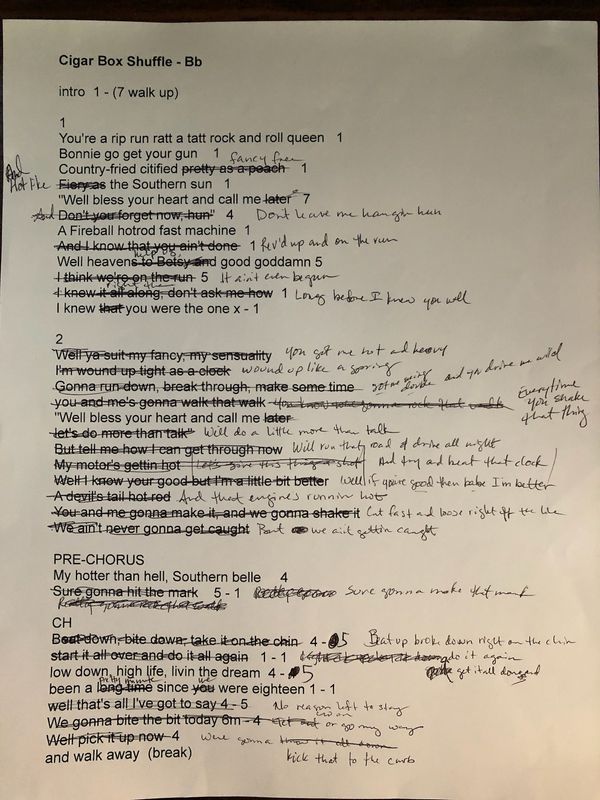 Cigar Box Shuffle - Bb
intro 1 - (7 walk up)
1
You're a rip run ratt a tatt rock and roll queen 1
Bonnie go get your gun 1 fancy free
Country-fried citified pretty as a peach 1
And Hot like Fiery as the Southern sun 1
"Well bless your heart and call me later" 7
And Don't you forget now, hun" 4 Don't leave me hangin hun
A Fireball hotrod fast machine 1
And I know that you ain't done 1 Rev'd up and on the run
help us
Well heavens to Betsy and good goddamn 5
I think we're on the run 5 It ain't even begun
right then
I knew it all along, don't ask me how 1 Long before I knew you well
I knew that you were the one x - 1
2
Well ya suit my fancy, my sensuality you got me hot and heavy
I'm wound up tight as a clock wound up like a spring
Gonna run down, break through, make some time and you drive me wild
you and me's gonna walk that walk you know were gonna rock that walk Everytime you shake that thing
"Well bless your heart and call me later
let's do more than talk" Will do a little more than talk
But tell me how I can get through now Will run that road & drive all night
My motor's gettin hot And try and beat that clock
Well I know your good but I'm a little bit better Well if you're good then babe I'm better
A devil's tail hot red And that engines runnin hot
You and me gonna make it, and we gonna shake it Cut fast and loose right off the
We ain't never gonna get caught But we ain't gettin caught
PRE-CHORUS
My hotter than hell, Southern belle 4
Sure gonna hit the mark 5 - 1 Sure gonna make that mark
CH
Beat down, bite down, take it on the chin 4 - 5 Beat up broke down right on the chin
start it all over and do it all again 1 - 1 do it again
low down, high life, livin the dream 4 - 5 get it all done and
pretty minute we
been a long time since you were eighteen 1 - 1
well that's all I've got to say 4 - 5 No reason left to stay
We gonna bite the bit today 6m - 4 or go my way
Well pick it up now 4 were gonna throw it all down
and walk away (break) kick that to the curb